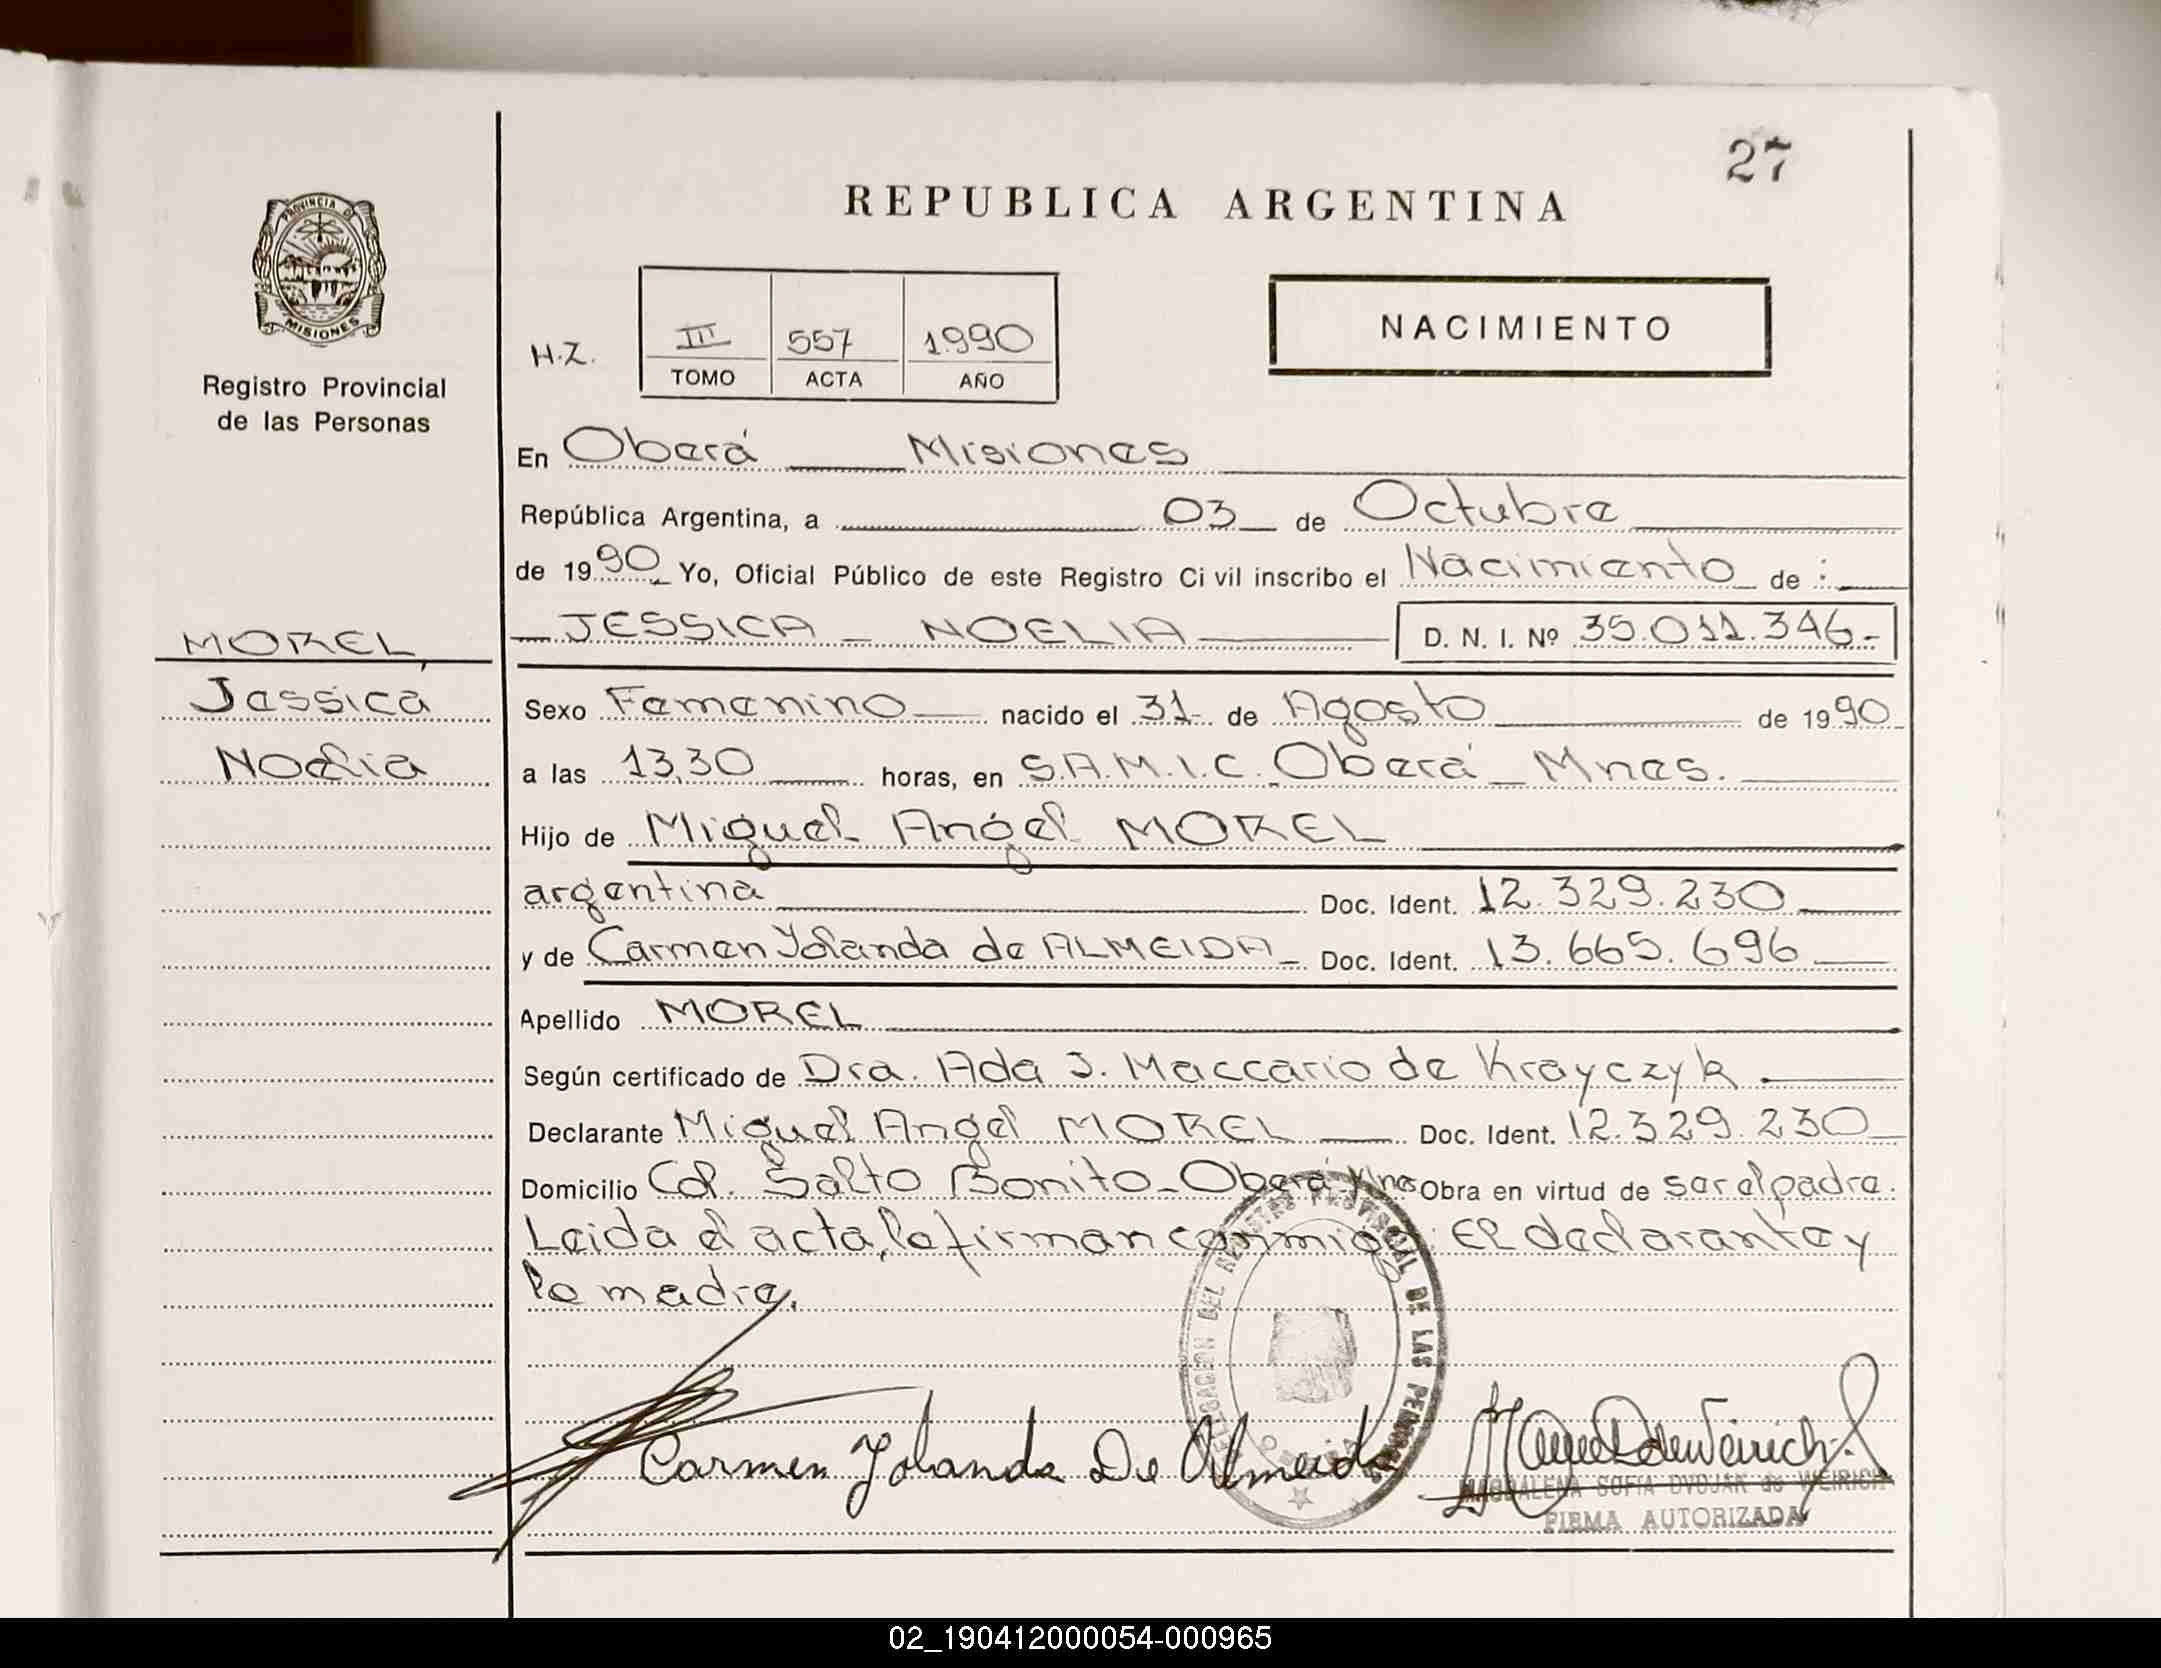 27
REPUBLICA ARGENTINA
PROVINCIA DE
MISIONES
Registro Provincial
de las Personas
NACIMIENTO
H.Z.
III 557 1990
TOMO ACTA AÑO
En Oberá Misiones
República Argentina, a 03 de Octubre
de 1990 Yo, Oficial Público de este Registro Civil inscribo el Nacimiento de :
JESSICA NOELIA D. N. I. Nº 35.011.346.-
MOREL,
Jessica
Noelia
Sexo Femenino nacido el 31 de Agosto de 1990
a las 13,30 horas, en S.A.M.I.C. Oberá - Mnes.
Hijo de Miguel Angel MOREL
argentina Doc. Ident. 12.329.230
y de Carmen Yolanda de ALMEIDA Doc. Ident. 13.665.696
Apellido MOREL
Según certificado de Dra. Ada J. Maccario de Krayczyk.
Declarante Miguel Angel MOREL Doc. Ident. 12.329.230
Domicilio Col. Salto Bonito - Oberá Mnes Obra en virtud de ser el padre.
Leida el acta, la firman conmigo: El declarante y
la madre.
DELEGACION DEL REGISTRO PROVINCIAL DE LAS PERSONAS
Carmen Yolanda De Almeida
MAGDALENA SOFIA DVOJAK de WEIRICH
FIRMA AUTORIZADA
02_190412000054-000965